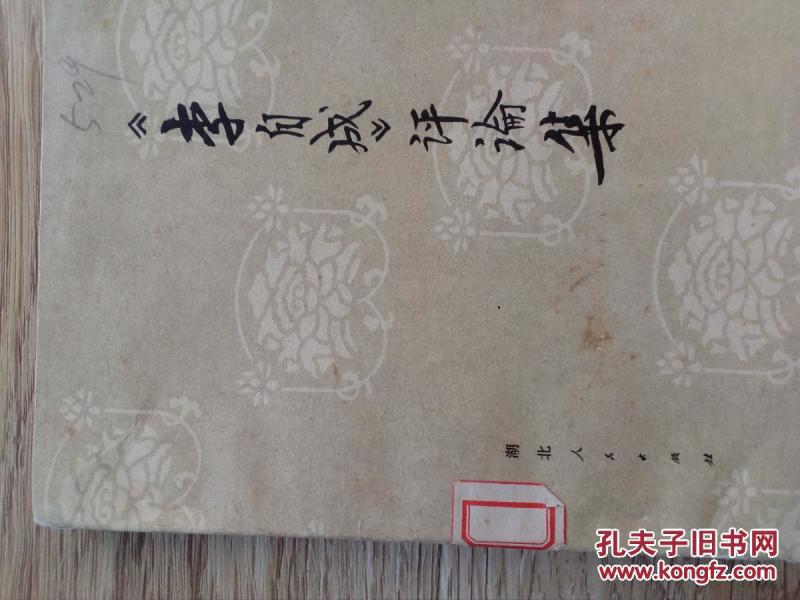 5-29
《李自成》评论集
湖北人民出版社
孔夫子旧书网
www.kongfz.com